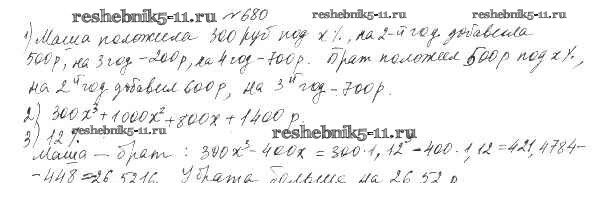 reshebnik5-11.ru №680 reshebnik5-11.ru
1) Маша положила 300 руб под x%, на 2-й год добавила
500р, на 3 год -200р, на 4 год -700р. Брат положил 500р под x%,
на 2й год добавил 600р, на 3й год -700р.
2) 300x³+1000x²+800x+1400р
3) 12%. reshebnik5-11.ru reshebnik5-11.ru
Маша – брат: 300x³-400x = 300·1,12³-400·1,12=421,4784-
-448=26,5216. У брата больше на 26,52 р
reshebnik5-11.ru